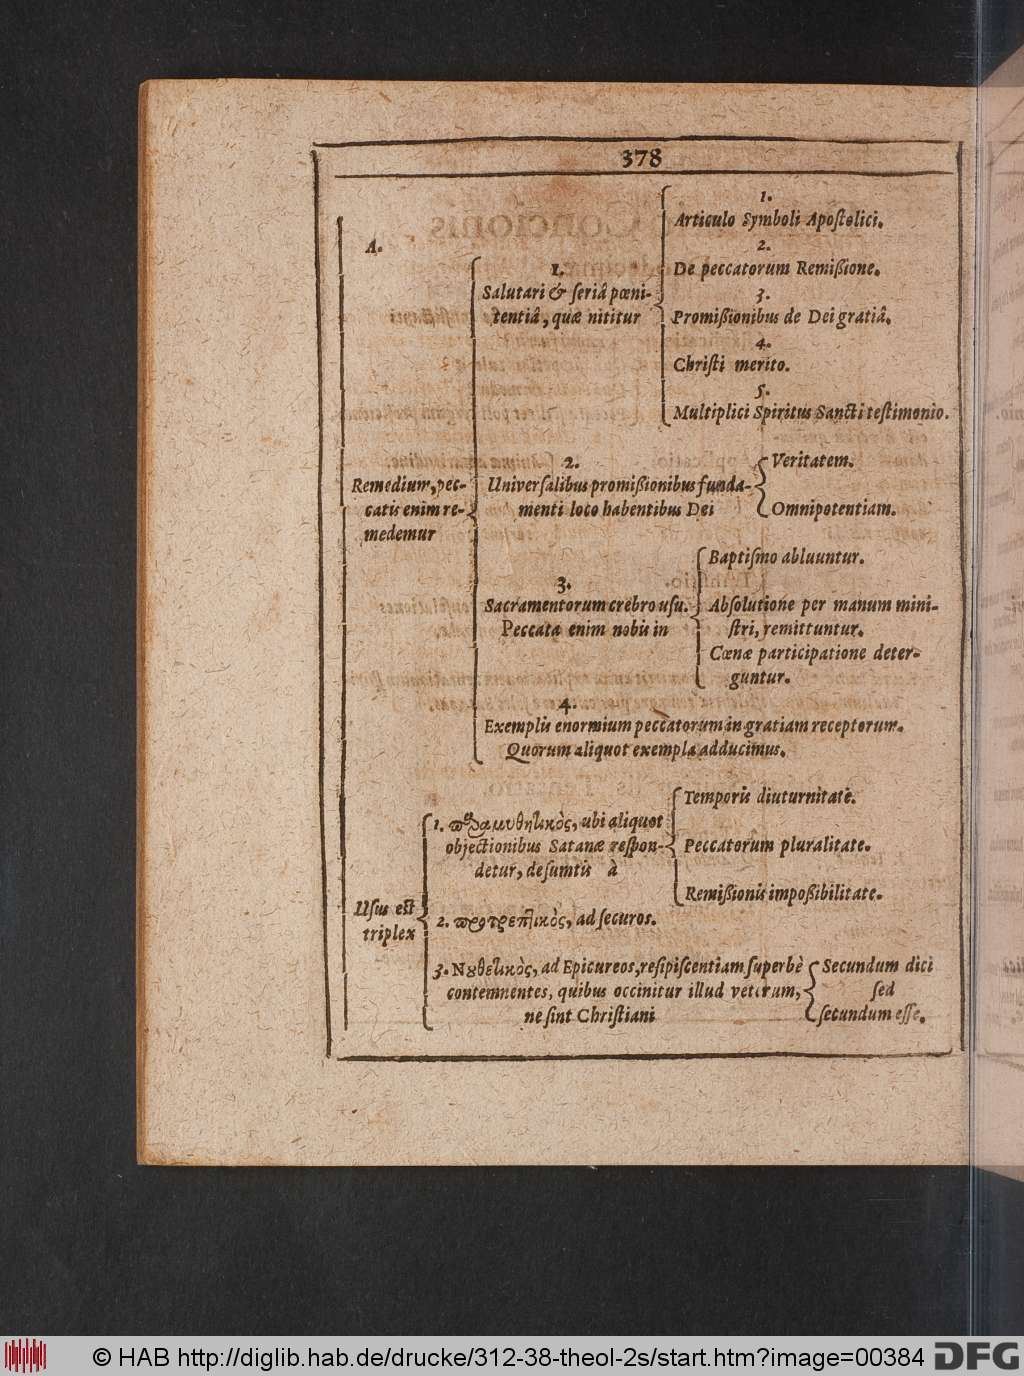 378
A.
Remedium, pec-
catis enim re-
medemur
1.
Salutari & ſeriâ pœni-
tentiâ, quæ nititur
1.
Articulo Symboli Apoſtolici.
2.
De peccatorum Remißione.
3.
Promißionibus de Dei gratiâ.
4.
Chriſti merito.
5.
Multiplici Spiritus Sancti teſtimonio.
2.
Univerſalibus promißionibus funda-
menti loco habentibus Dei
Veritatem.
Omnipotentiam.
3.
Sacramentorum crebro uſu.
Peccata enim nobis in
Baptiſmo abluuntur.
Abſolutione per manum mini-
ſtri, remittuntur.
Cœnæ participatione deter-
guntur.
4.
Exemplis enormium peccatorum in gratiam receptorum.
Quorum aliquot exempla adducimus.
Uſus eſt
triplex
1. παραμυθητικὸς, ubi aliquot
objectionibus Satanæ reſpon-
detur, deſumtis à
Temporis diuturnitate.
Peccatorum pluralitate.
Remißionis impoßibilitate.
2. προτρεπτικὸς, ad ſecuros.
3. Νουθετικὸς, ad Epicureos, reſipiſcentiam ſuperbè
contemnentes, quibus occinitur illud veterum,
ne ſint Chriſtiani
Secundum dici
ſed
ſecundum eſſe.
© HAB http://diglib.hab.de/drucke/312-38-theol-2s/start.htm?image=00384
DFG